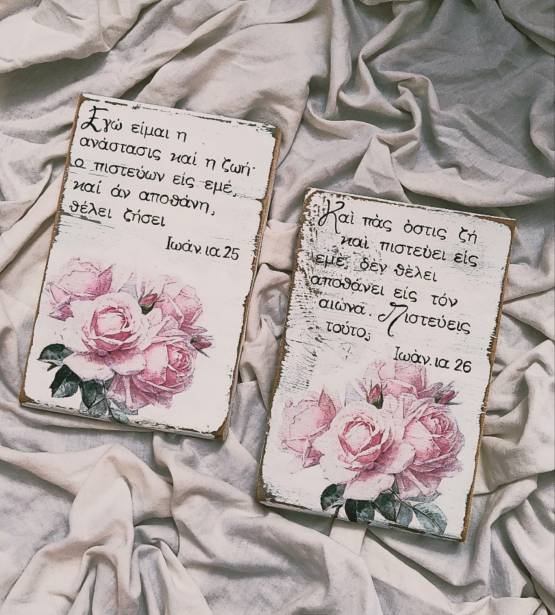 Εγώ είμαι η
ανάστασις καί η ζωή·
ο πιστεύων είς εμέ,
καί άν αποθάνη,
θέλει ζήσει
Ιωάν.ια 25
Καί πάς όστις ζή
καί πιστεύει είς
εμέ, δέν θέλει
αποθάνει είς τόν
αιώνα. Πιστεύεις
τούτο;
Ιωάν.ια 26